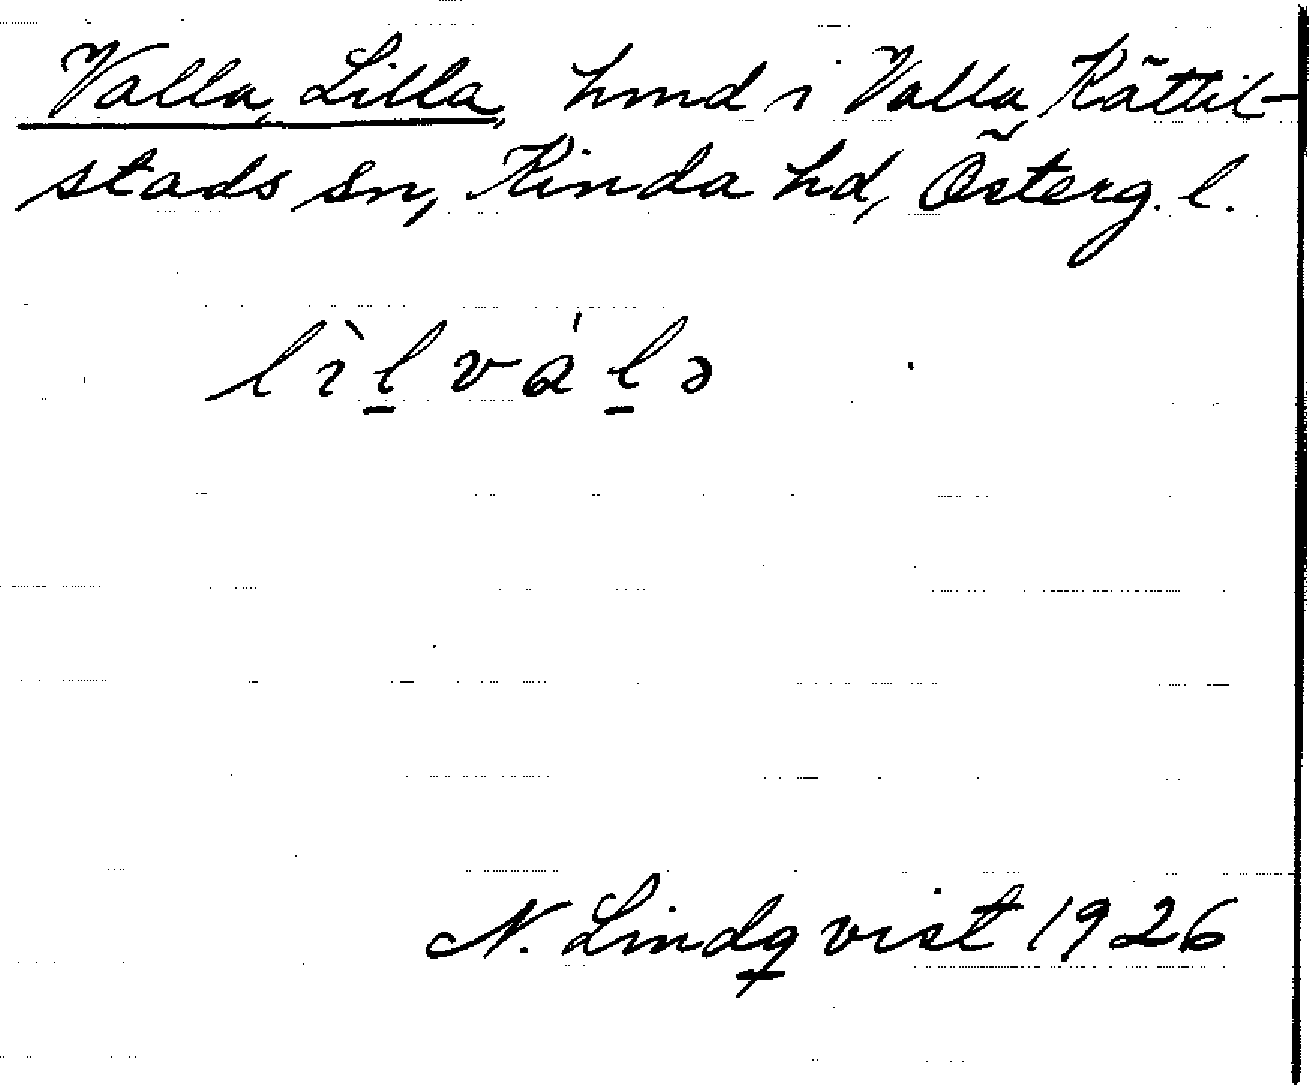 Valla, Lilla, hmd i Valla, Kättil-
stads sn, Kinda hd, Österg. l.
lìl̠ vál̠ə
N. Lindqvist 1926